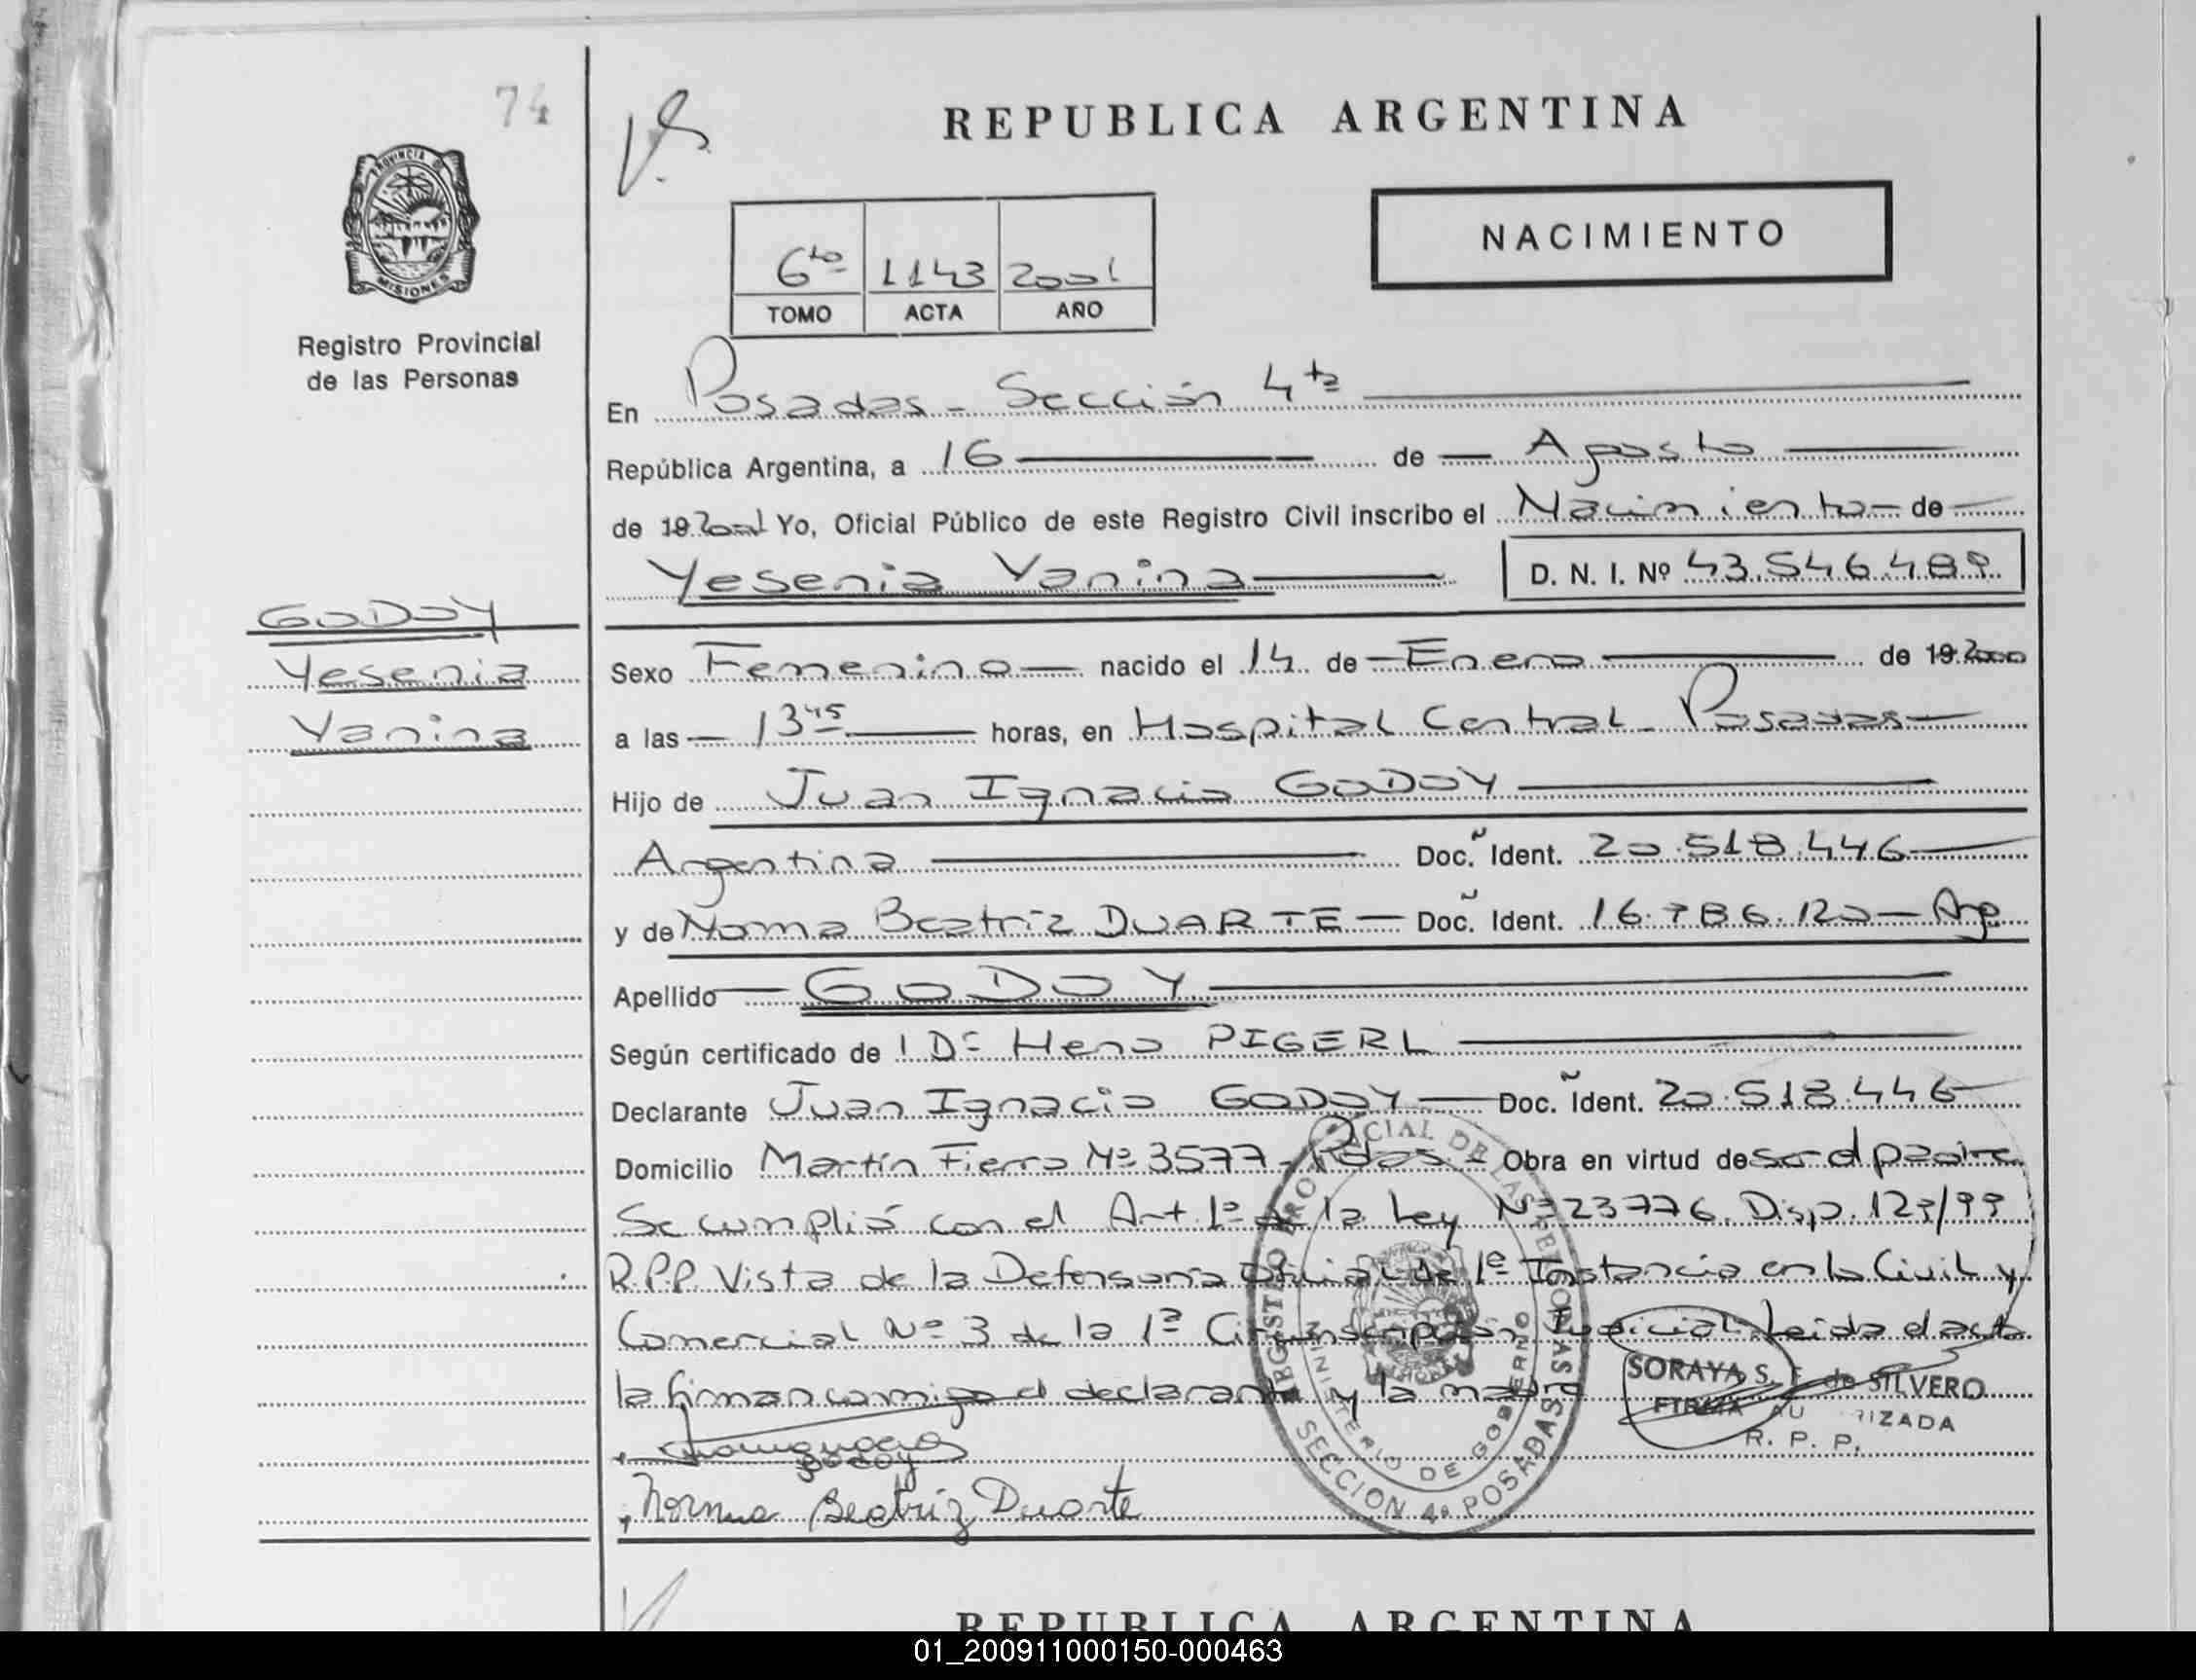 74
REPUBLICA ARGENTINA
PROVINCIA DE
MISIONES
Registro Provincial
de las Personas
NACIMIENTO
6to 1143 2001
TOMO ACTA AÑO
En Posadas - Sección 4ta
República Argentina, a 16 de Agosto
de 19 2001 Yo, Oficial Público de este Registro Civil inscribo el Nacimiento de
Yesenia Yanina D. N. I. Nº 43.546.489
GODOY
Yesenia
Yanina
Sexo Femenino nacido el 14 de Enero de 19 2000
a las 13 45 horas, en Hospital Central - Posadas
Hijo de Juan Ignacio GODOY
Argentina Doc. Ident. 20.518.446
y de Norma Beatriz DUARTE Doc. Ident. 16.786.120 - Arg
Apellido GODOY
Según certificado de 1 Dr PIGERL
Declarante Juan Ignacio GODOY Doc. Ident. 20.518.446
Domicilio Martín Fierro Nº 3577 - Pdas. - Obra en virtud de ser el padre
Se cumplió con el Art. 1º de la Ley Nº 23776. Disp. 129/99
R.P.P. Vista de la Defensoría Oficial de 1º Instancia en lo Civil y
Comercial Nº 3 de la 1ª Circunscripción Judicial. Leida el acta
la firman conmigo el declarante y la madre
SORAYA S. F. de SILVERO
FIRMA AUTORIZADA
R. P. P.
Godoy
Norma Beatriz Duarte
REGISTRO PROVINCIAL DE LAS PERSONAS
MINISTERIO DE GOBIERNO
SECCION 4ª POSADAS
REPUBLICA ARGENTINA
01_200911000150-000463